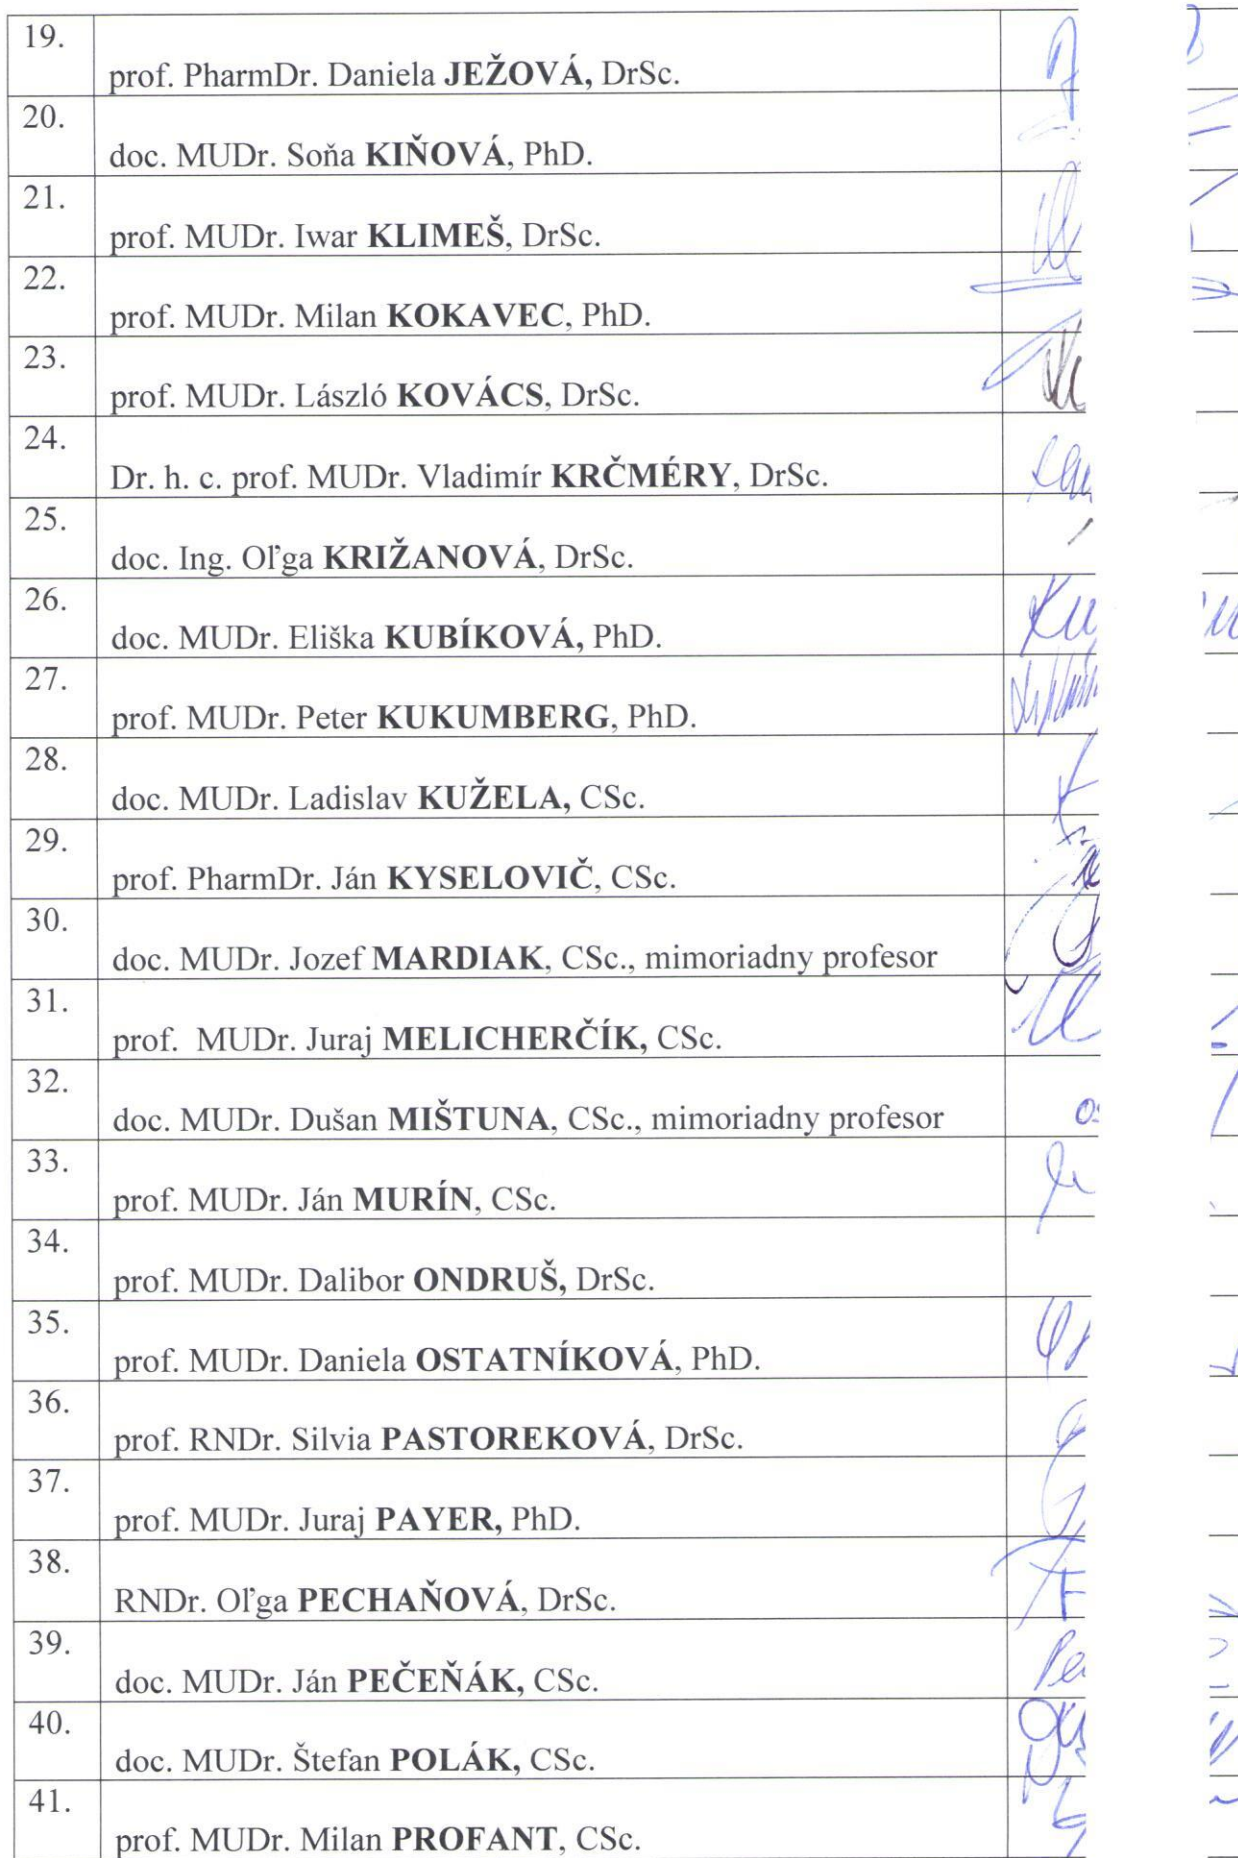 19.
prof. PharmDr. Daniela JEŽOVÁ, DrSc.
20.
doc. MUDr. Soňa KIŇOVÁ, PhD.
21.
prof. MUDr. Iwar KLIMEŠ, DrSc.
22.
prof. MUDr. Milan KOKAVEC, PhD.
23.
prof. MUDr. László KOVÁCS, DrSc.
24.
Dr. h. c. prof. MUDr. Vladimír KRČMÉRY, DrSc.
25.
doc. Ing. Oľga KRIŽANOVÁ, DrSc.
26.
doc. MUDr. Eliška KUBÍKOVÁ, PhD.
27.
prof. MUDr. Peter KUKUMBERG, PhD.
28.
doc. MUDr. Ladislav KUŽELA, CSc.
29.
prof. PharmDr. Ján KYSELOVIČ, CSc.
30.
doc. MUDr. Jozef MARDIAK, CSc., mimoriadny profesor
31.
prof. MUDr. Juraj MELICHERČÍK, CSc.
32.
doc. MUDr. Dušan MIŠTUNA, CSc., mimoriadny profesor
33.
prof. MUDr. Ján MURÍN, CSc.
34.
prof. MUDr. Dalibor ONDRUŠ, DrSc.
35.
prof. MUDr. Daniela OSTATNÍKOVÁ, PhD.
36.
prof. RNDr. Silvia PASTOREKOVÁ, DrSc.
37.
prof. MUDr. Juraj PAYER, PhD.
38.
RNDr. Oľga PECHAŇOVÁ, DrSc.
39.
doc. MUDr. Ján PEČEŇÁK, CSc.
40.
doc. MUDr. Štefan POLÁK, CSc.
41.
prof. MUDr. Milan PROFANT, CSc.